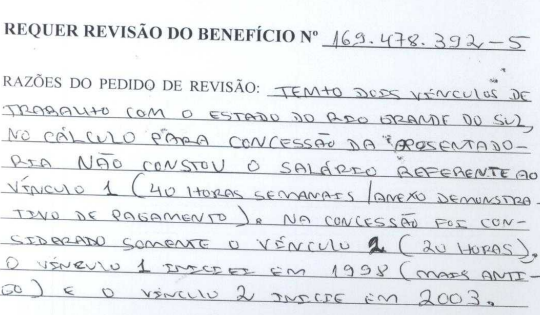 REQUER REVISÃO DO BENEFÍCIO Nº 169.478.392-5
RAZÕES DO PEDIDO DE REVISÃO: TENHO DOIS VÍNCULOS DE
TRABALHO COM O ESTADO DO RIO GRANDE DO SUL,
NO CÁLCULO PARA CONCESSÃO DA APOSENTADO-
RIA NÃO CONSTOU O SALÁRIO REFERENTE AO
VÍNCULO 1 (40 HORAS SEMANAIS / ANEXO DEMONSTRA-
TIVO DE PAGAMENTO). NA CONCESSÃO FOI CON-
SIDERADO SOMENTE O VÍNCULO 2 (20 HORAS).
O VÍNCULO 1 INICIEI EM 1998 (MAIS ANTI-
GO) E O VÍNCULO 2 INICIE EM 2003.